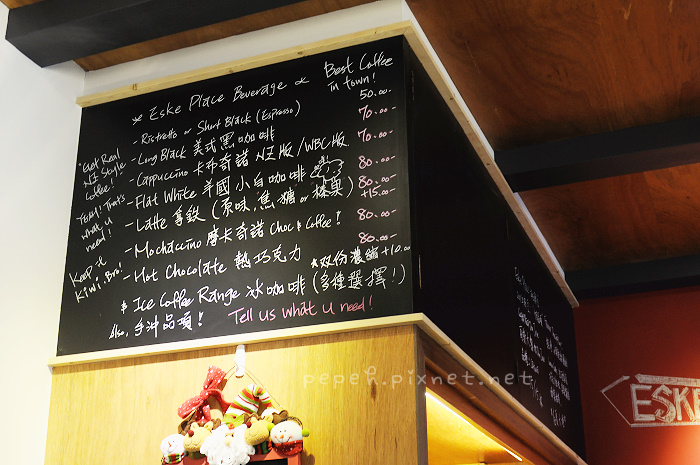 * Eske Place Beverage
Best Coffee in town!
- Ristretto or Short Black (Espresso) 50.00-
- Long Black 美式黑咖啡 70.00-
- Cappuccino 卡布奇諾 NZ版/WBC版 70.00-
- Flat White 羊國小白咖啡 80.00-
- Latte 拿鐵 (原味,焦糖 or 榛果) 80.00- +15.00-
- Mochaccino 摩卡奇諾 Choc & Coffee! 80.00-
- Hot Chocolate 熱巧克力 80.00-
★双份濃縮+10.00
$ Ice Coffee Range 冰咖啡 (多種選擇!)
Also, 手沖品項! Tell us what u need!
"Get Real
NZ Style
Coffee!
YEAH! That's
what u
need!
Keep it
Kiwi. Bro!
pepeh.pixnet.net
ESKE